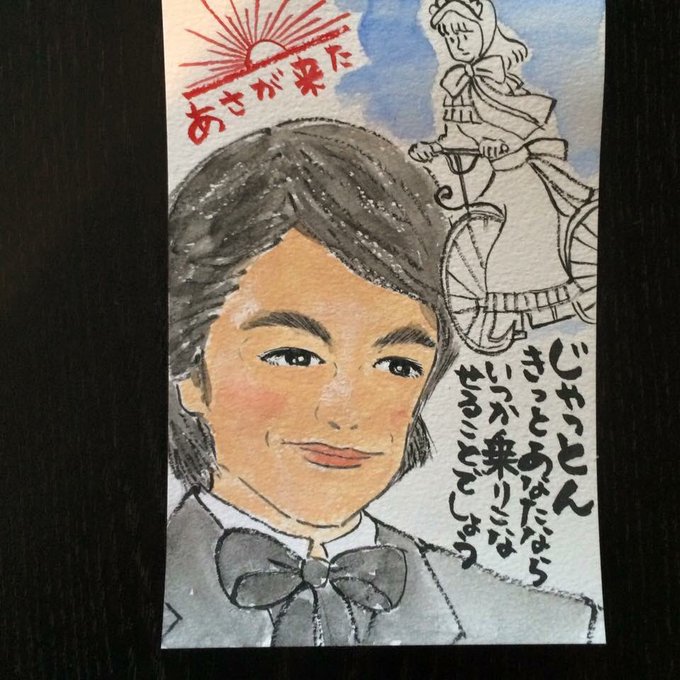 あさが来た
じゃっとん
きっとあなたなら
いつか乗りこな
せることでしょう